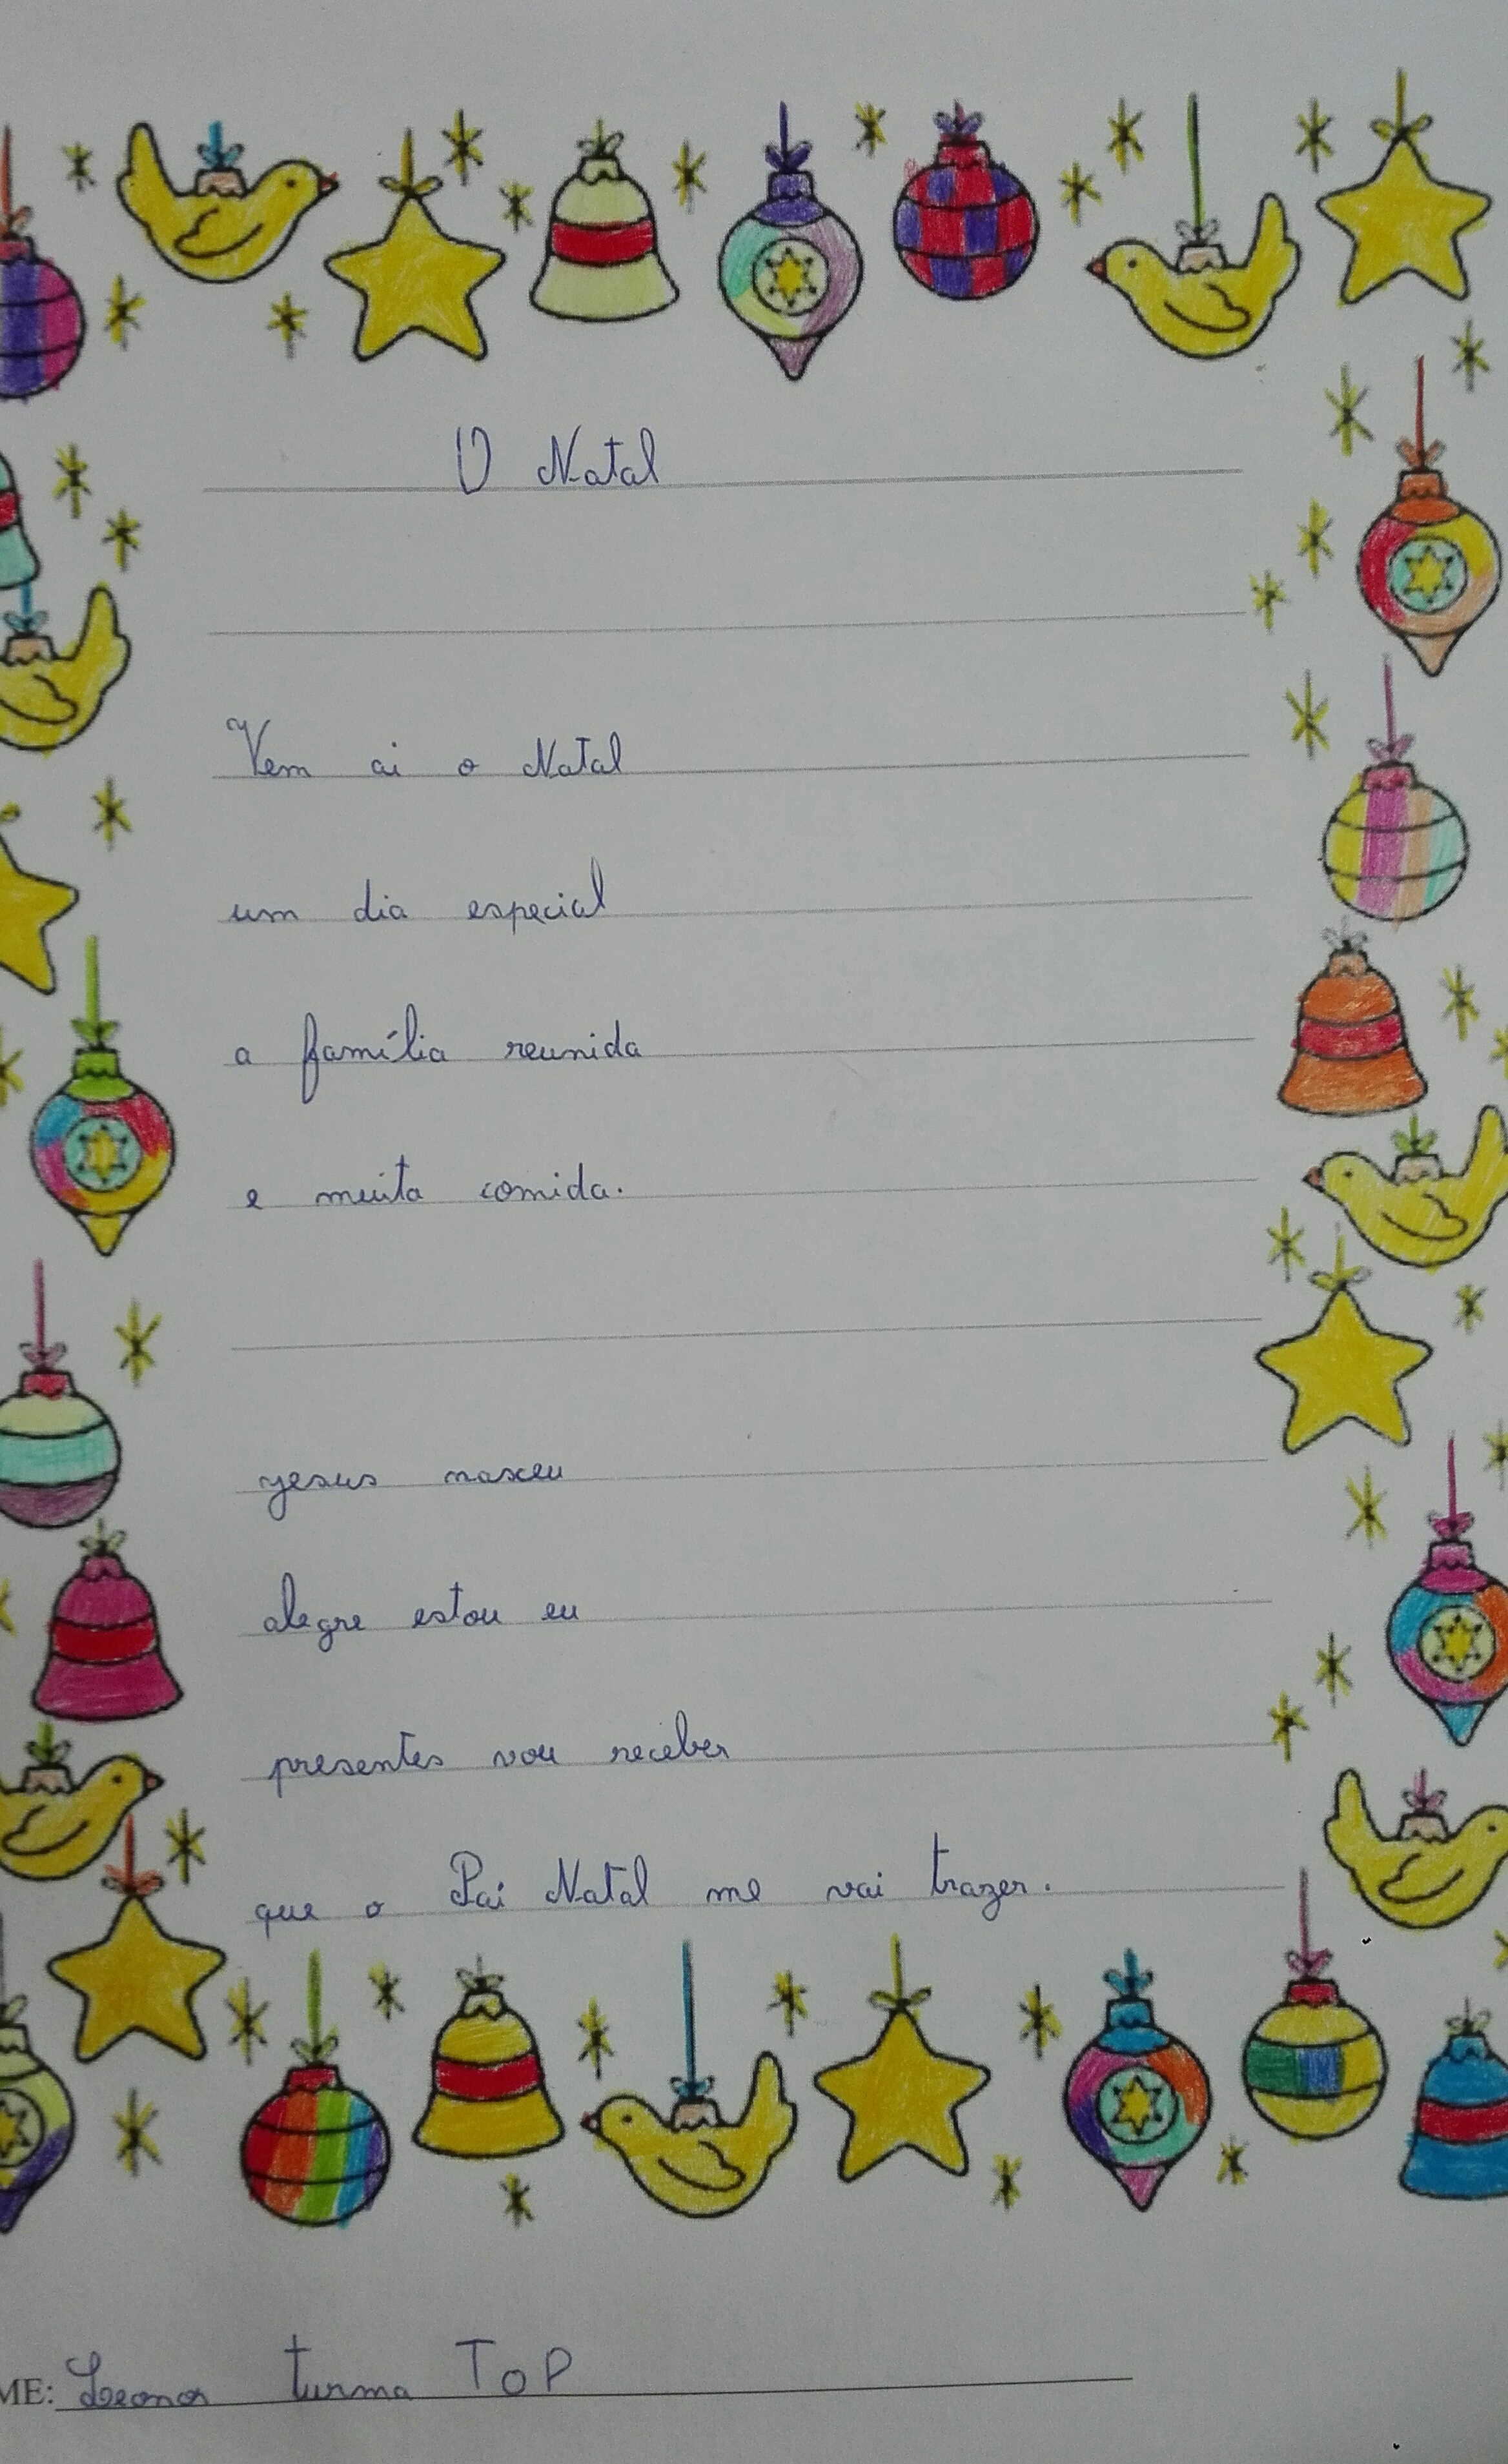 O Natal
Vem ai o Natal
um dia especial
a família reunida
e muita comida.
jesus nasceu
alegre estou eu
presentes vou receber
que o Pai Natal me vai trazer.
ME: Leonor turma ToP